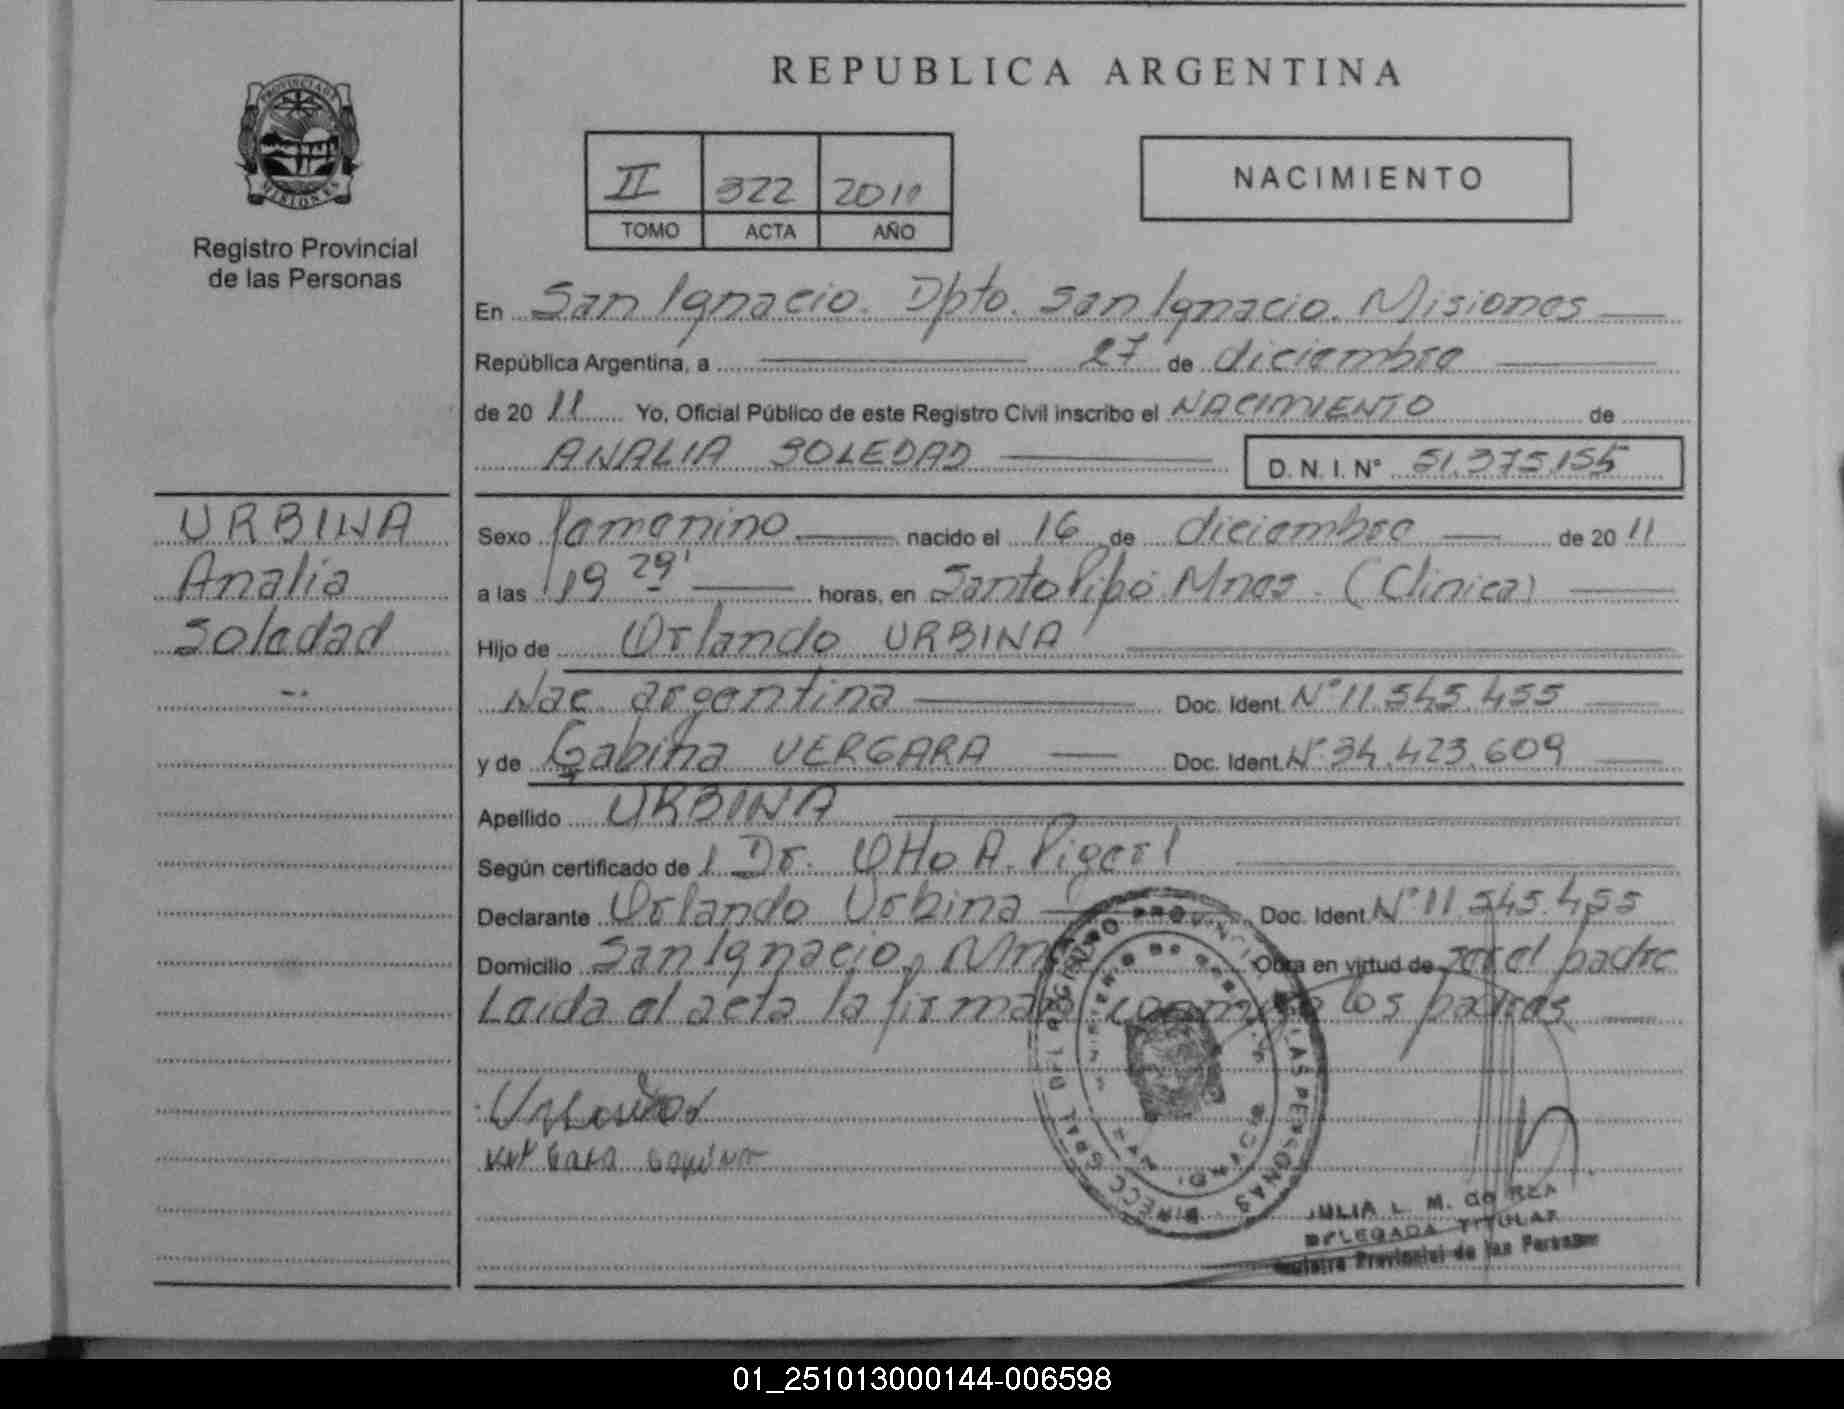 PROVINCIA DE
MISIONES
Registro Provincial
de las Personas
REPUBLICA ARGENTINA
II 322 2011
TOMO ACTA AÑO
NACIMIENTO
En San Ignacio. Dpto. San Ignacio. Misiones
República Argentina, a 27 de diciembre
de 20 11 Yo, Oficial Público de este Registro Civil inscribo el NACIMIENTO de
ANALIA SOLEDAD D. N. I. N° 51.375.155
URBINA
Analia
Soledad
Sexo femenino nacido el 16 de diciembre de 20 11
a las 19 29' horas, en Santo Pipó Mnes. (Clinica)
Hijo de Orlando URBINA
Nac. argentina Doc. Ident. N° 11.545.455
y de Gabina VERGARA Doc. Ident. N° 34.423.609
Apellido URBINA
Según certificado de l Dr. Otto A. Pigerl
Declarante Orlando Urbina Doc. Ident. N° 11.545.455
Domicilio San Ignacio, Obra en virtud de ser el padre
Leida el acta la firman conmigo los padres
JULIA L. M.
DELEGADA TITULAR
Registro Provincial de las Personas
01_251013000144-006598